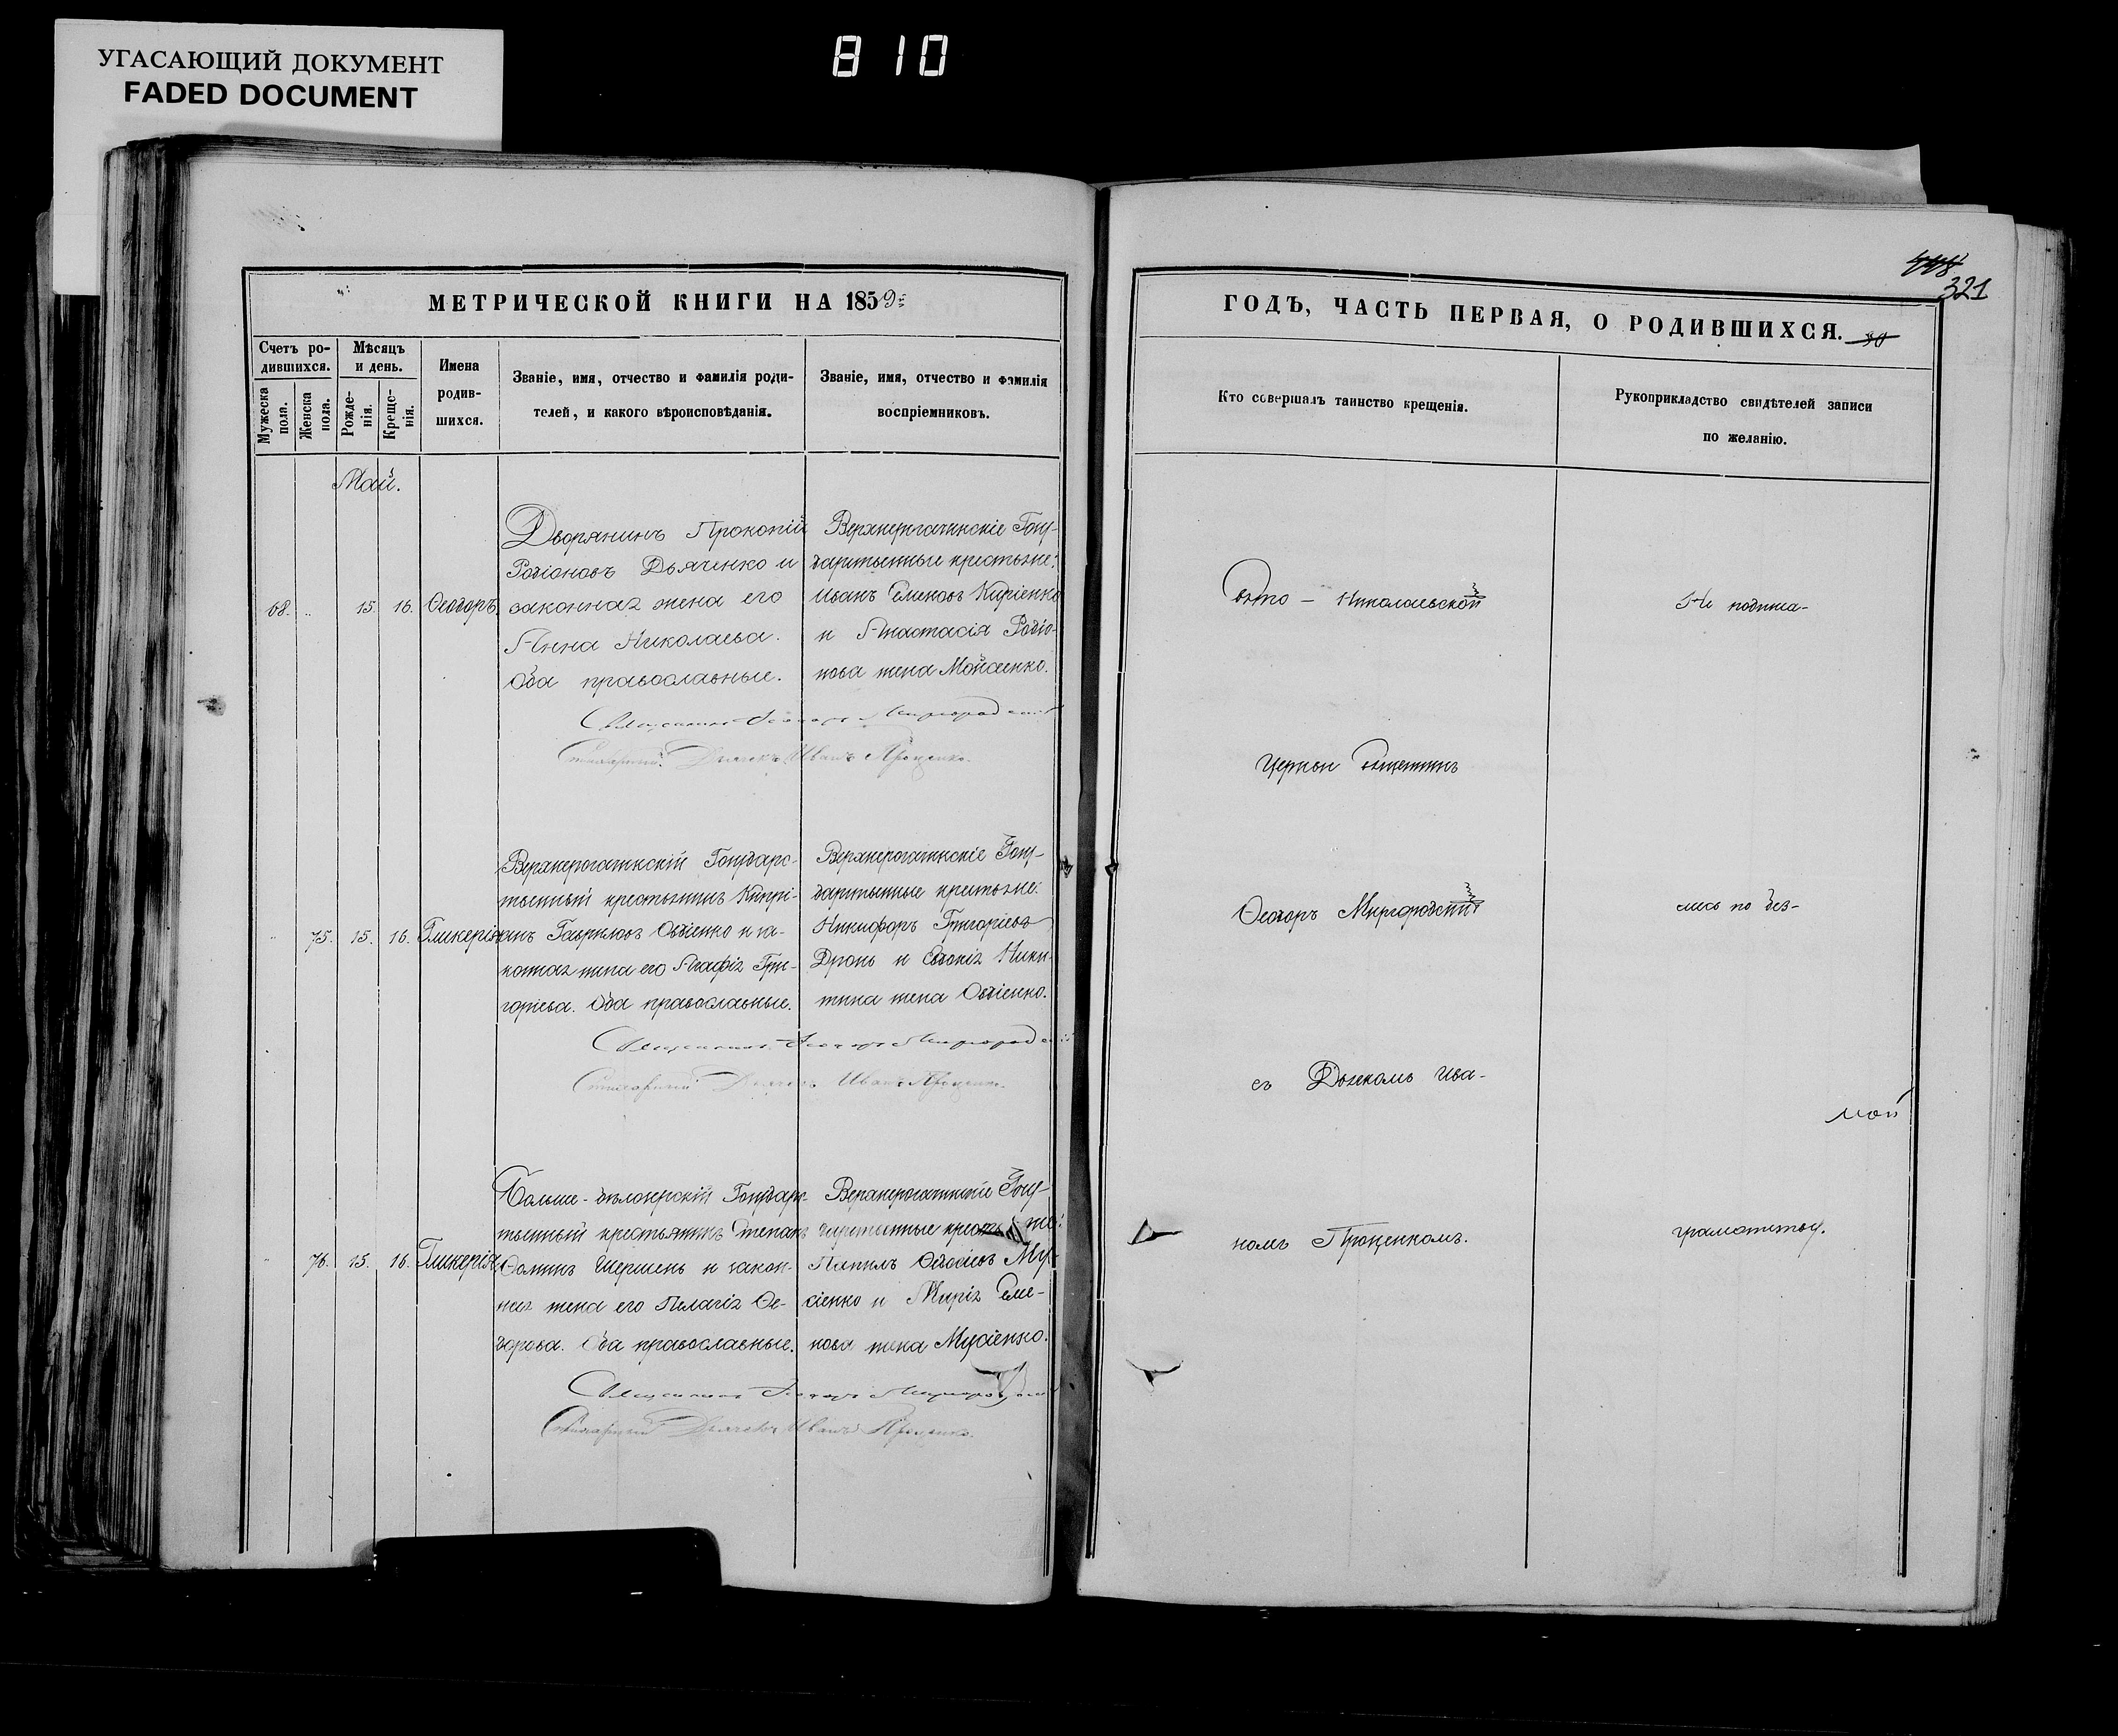 УГАСАЮЩИЙ ДОКУМЕНТ
FADED DOCUMENT
810
МЕТРИЧЕСКОЙ КНИГИ НА 1859
Счетъ ро-
дившихся.
Мужеска пола.
Женска пола.
Мѣсяцъ
и день.
Рожде-
нія.
Креще-
нія.
Имена
родив-
шихся.
Званіе, имя, отчество и фамилія роди-
телей, и какого вѣроисповѣданія.
Званіе, имя, отчество и фамилія
воспріемниковъ.
Май.
68. 15. 16. Ѳеодоръ,
Дворянинъ Прокопій
Родіоновъ Дьяченко и
законная жена его
Анна Николаева.
Оба православные.
Верхнерогачинскіе Госу-
дарственные крестьяне:
Иванъ Семеновъ Киріенко
и Анастасія Родіо-
нова жена Мойсеенко.
Священникъ Ѳеодоръ Миргородскій
Стихарный Дьячекъ Иванъ Проценко.
75. 15. 16. Гликерія
Верхнерогачинскій Государс-
твенный крестьянинъ Кипрі-
анъ Гавриловъ Овдіенко и за-
конная жена его Агафія Гри-
горіева. Оба православные.
Верхнерогачинскіе Госу-
дарственные крестьяне:
Никифоръ Григоріевъ
Дронь и Евдокія Ники-
тина жена Овдіенко.
Священникъ Ѳеодоръ Миргородскій
Стихарный Дьячекъ Иванъ Проценко.
76. 15. 16. Гликерія,
Больше-бѣлозерскій Государс-
твенный крестьянинъ Степанъ
Ѳоминъ Шершень и закон-
ная жена его Пелагія Ѳе-
дорова. Оба православные.
Верхнерогачинскіе Госу-
дарственные крестьяне:
Ѳедосіевъ Му-
сіенко и Марія Семе-
нова жена Мусіенко.
Священникъ Ѳеодоръ Миргородскій
Стихарный Дьячекъ Иванъ Проценко.
448
321
ГОДЪ, ЧАСТЬ ПЕРВАЯ, О РОДИВШИХСЯ.
Кто совершалъ таинство крещенія.
Рукоприкладство свидѣтелей записи
по желанію.
Свято-Николаевской
Не подписа-
Церкви Священникъ
Ѳеодоръ Миргородскій
лись по без-
съ Дьячкомъ Ива-
номъ Проценкомъ.
грамотству.